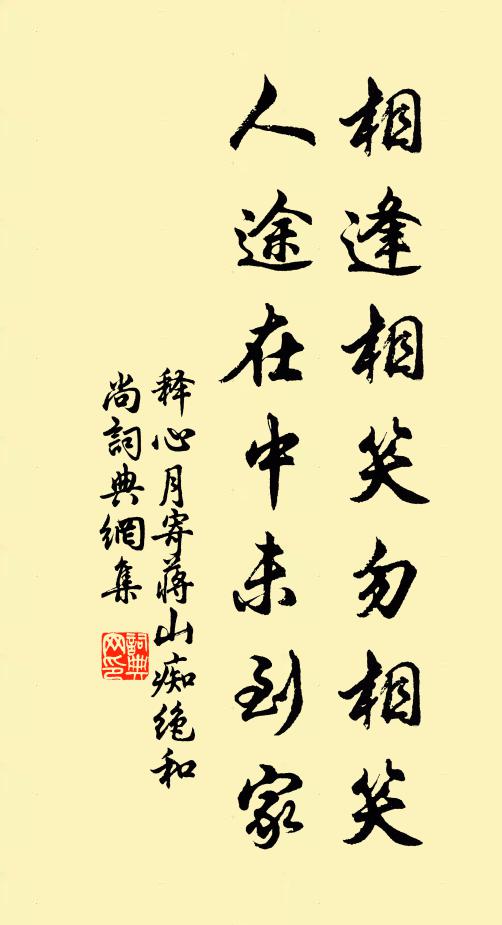 相逢相笑勿相笑
人途在中未到家
释心月寄蔣山痴绝和
尚詞典網集
詞典网印